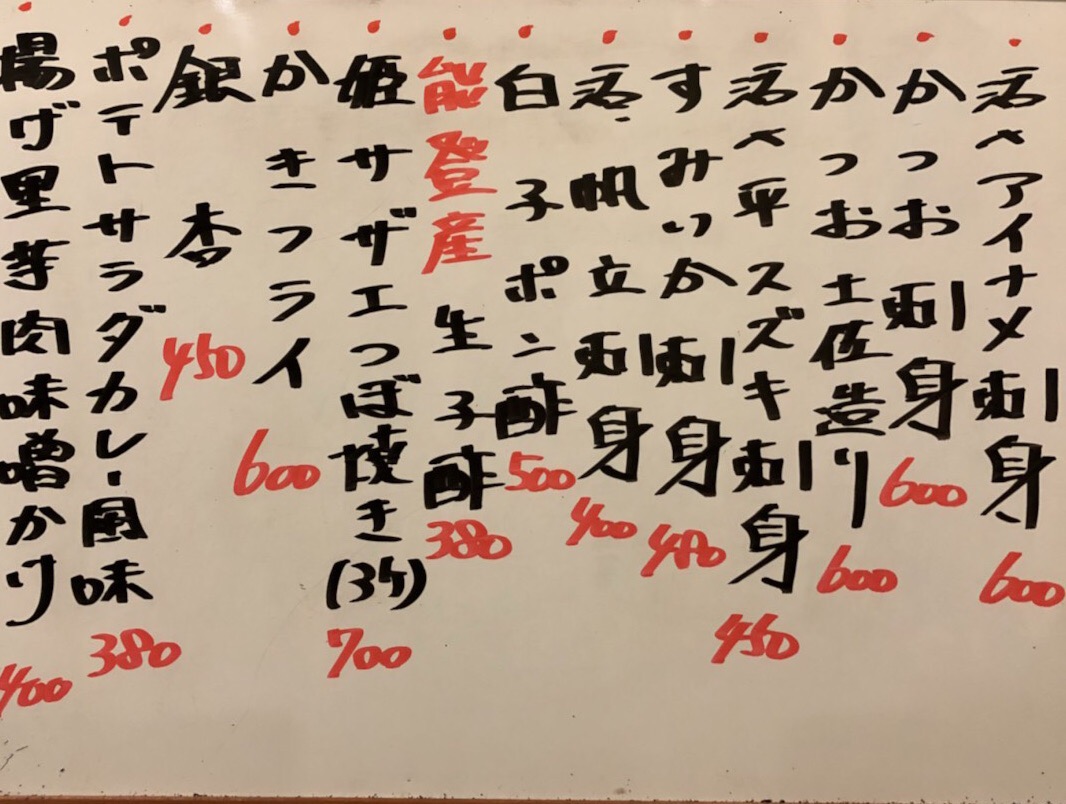 活〆アイナメ刺身 600
かつお刺身 600
かつお土佐造り 600
活〆平スズキ刺身 450
すみいか刺身 480
活帆立刺身 400
白子ポン酢 500
能登産生子酢 380
姫サザエつぼ焼き(3ケ) 700
かきフライ 600
銀杏 450
ポテトサラダカレー風味 380
揚げ里芋肉味噌かけ 400